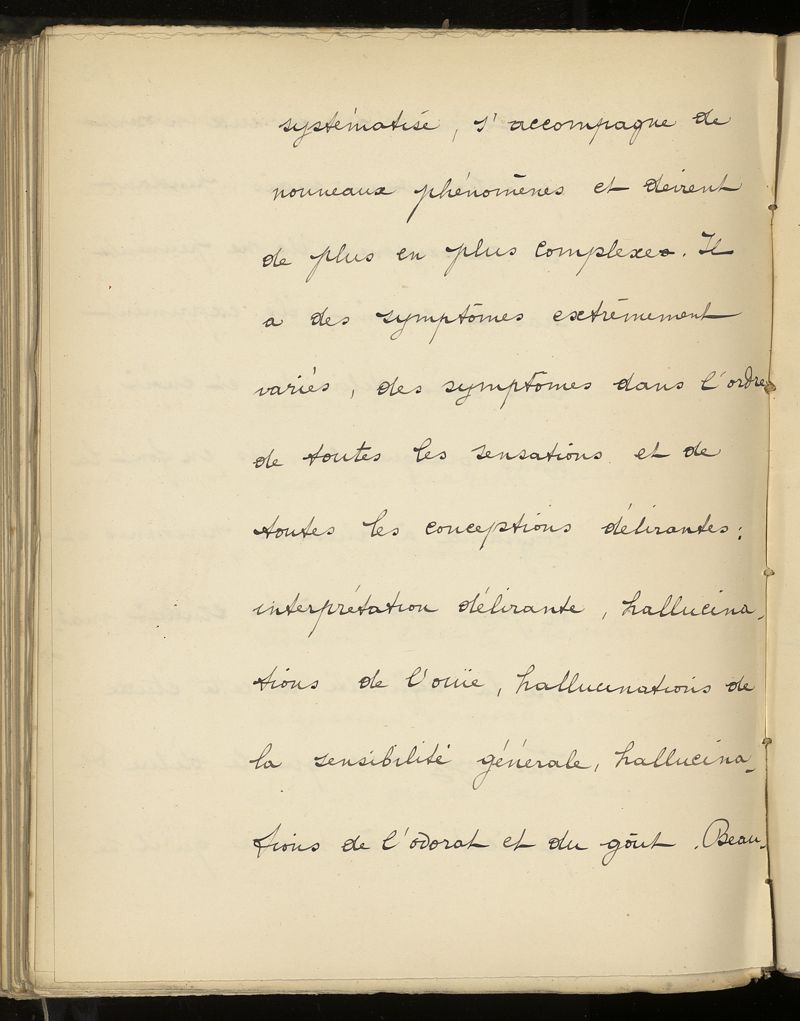 systématisé, s'accompagne de
nouveaux phénomènes et devient
de plus en plus complexe. Il
a des symptômes extrêmement
variés, des symptômes dans l'ordre
de toutes les sensations et de
toutes les conceptions délirantes :
interprétation délirante, hallucina-
tions de l'ouïe, hallucinations de
la sensibilité générale, hallucina-
tions de l'odorat et du goût. Beau-